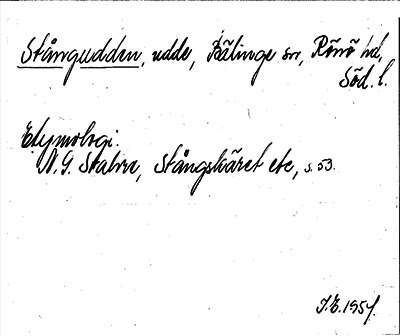 Stångudden, udde, Bälinge sn, Rönö hd,
Söd. l.
Etymologi.
N. G. Stahre, Stångskäret etc, s. 53.
J.E. 1954.